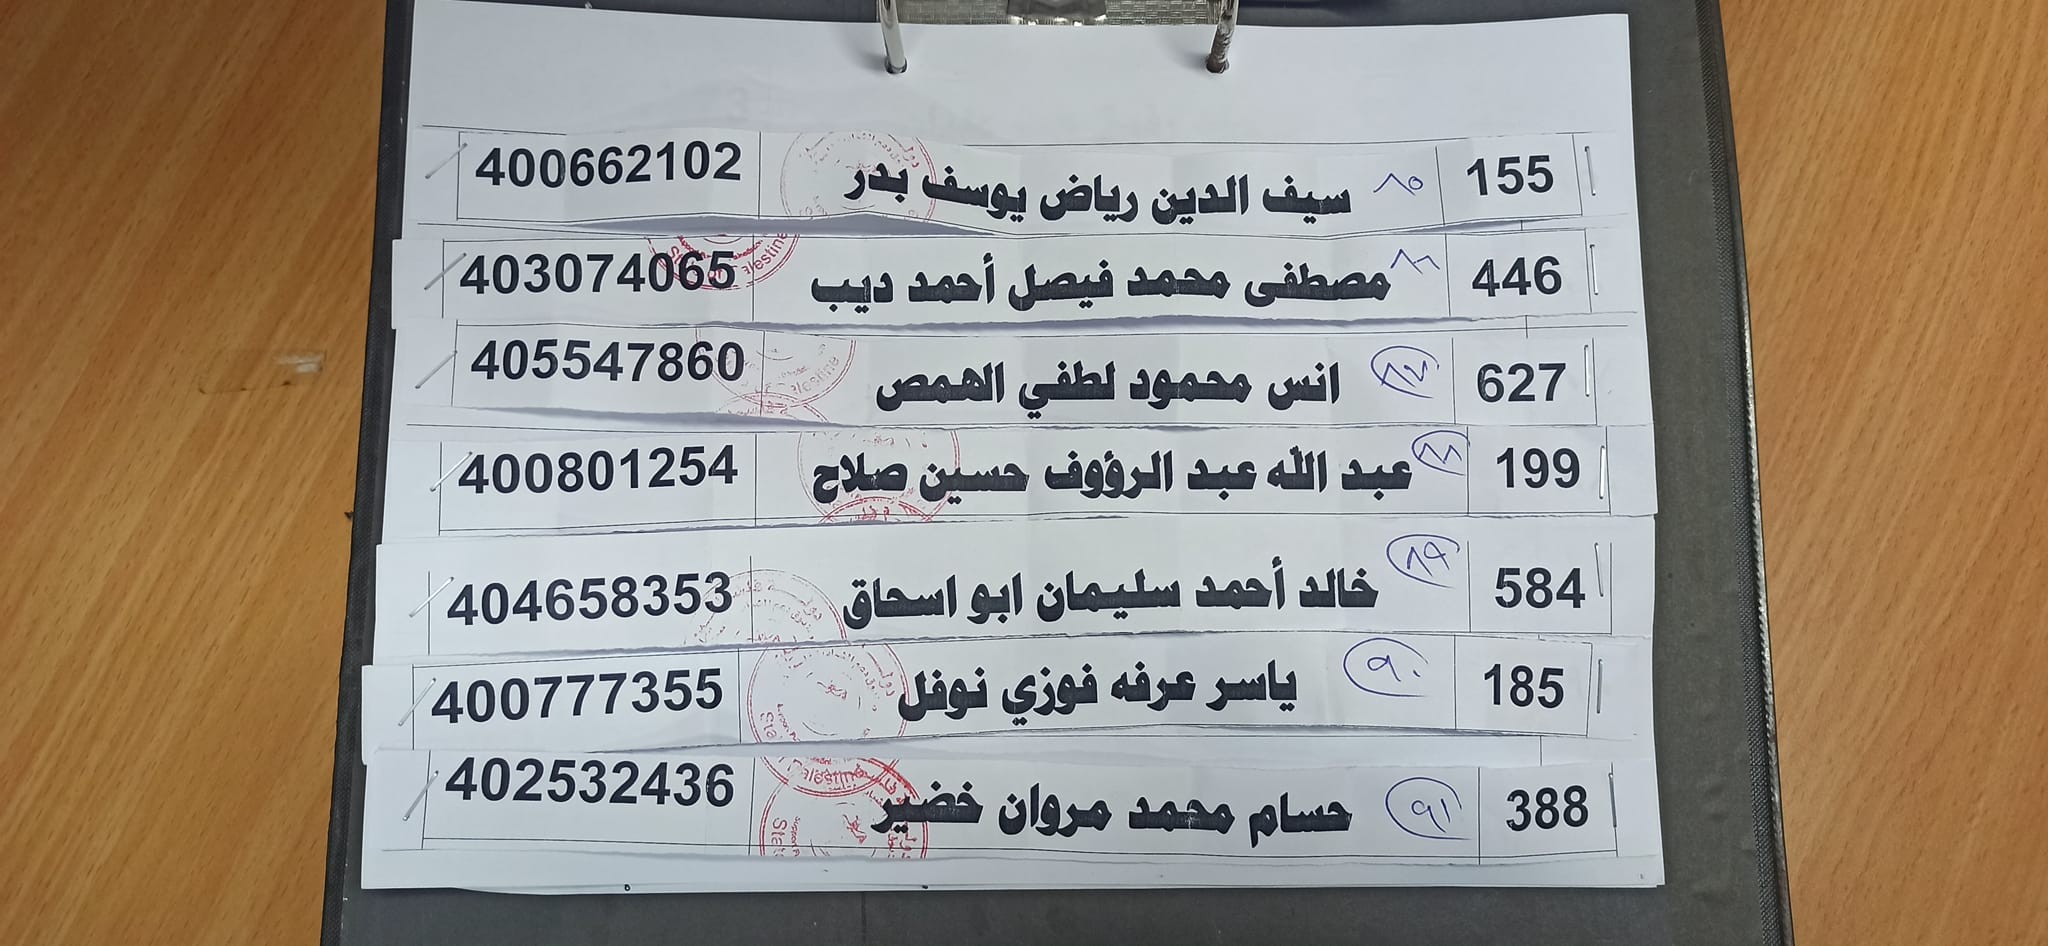 155 ٨٥ سيف الدين رياض يوسف بدر 400662102
446 ٨٦ مصطفى محمد فيصل أحمد ديب 403074065
627 ٨٧ انس محمود لطفي الهمص 405547860
199 ٨٨ عبد الله عبد الرؤوف حسين صلاح 400801254
584 ٨٩ خالد أحمد سليمان ابو اسحاق 404658353
185 ٩٠ ياسر عرفه فوزي نوفل 400777355
388 ٩١ حسام محمد مروان خضير 402532436